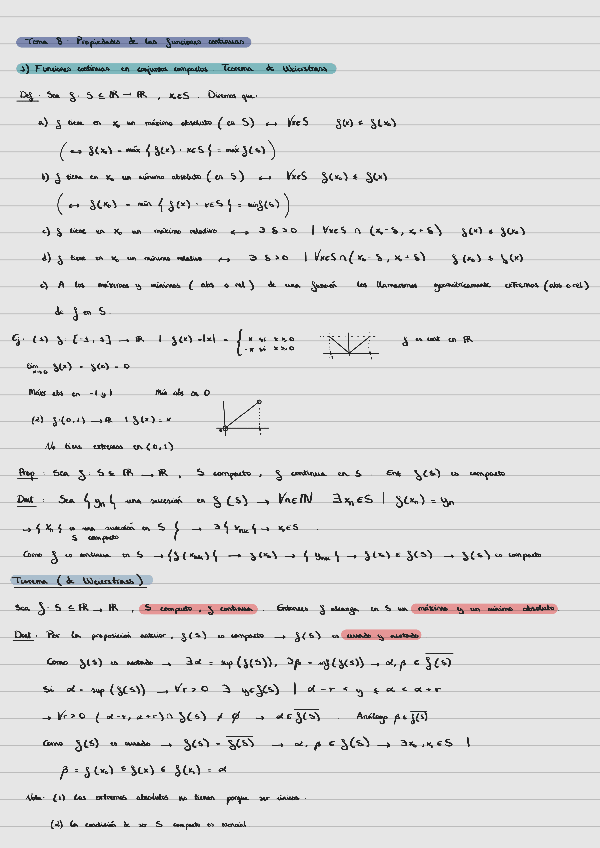 Tema 8. Propiedades de las funciones continuas
1) Funciones continuas en conjuntos compactos. Teorema de Weierstrass
Def. Sea f: S ⊆ ℝ → ℝ, x₀∈S. Diremos que:
a) f tiene en x₀ un máximo absoluto (en S) ↔ ∀x∈S f(x) ≤ f(x₀)
(↔ f(x₀) = máx {f(x) : x∈S} = máx f(S))
b) f tiene en x₀ un mínimo absoluto (en S) ↔ ∀x∈S f(x₀) ≤ f(x)
(↔ f(x₀) = mín {f(x) : x∈S} = mín f(S))
c) f tiene en x₀ un máximo relativo ↔ ∃ δ>0 | ∀x∈S ∩ (x₀-δ, x₀+δ) f(x) ≤ f(x₀)
d) f tiene en x₀ un mínimo relativo ↔ ∃ δ>0 | ∀x∈S ∩ (x₀-δ, x₀+δ) f(x₀) ≤ f(x)
e) A los máximos y mínimos (abs o rel) de una función los llamaremos extremos (abs o rel)
de f en S.
Ej. (1) f: [-1, 1] → ℝ | f(x) = |x| = { x si x≥0
-x si x>0 f es cont en ℝ
lim x→0 f(x) = f(0) = 0
Máxs abs en -1 y 1 Mín abs en 0
(2) f: (0,1) → ℝ | f(x) = x
No tiene extremos en (0,1)
Prop. Sea f: S ⊆ ℝ → ℝ, S compacto, f continua en S. Ent f(S) es compacto
Dem. Sea {yₙ} una sucesión en f(S) → ∀n∈ℕ ∃xₙ∈S | f(xₙ) = yₙ
→ {xₙ} es una sucesión en S } → ∃{xₙₖ} → x₀∈S
S compacto
Como f es continua en S → {f(xₙₖ)} → f(x₀) → {yₙₖ} → f(x₀) ∈ f(S) → f(S) es compacto
Teorema (de Weierstrass)
Sea f: S ⊆ ℝ → ℝ, S compacto, f continua. Entonces f alcanza en S un máximo y un mínimo absoluto
Dem. Por la proposición anterior, f(S) es compacto → f(S) es cerrado y acotado
Como f(S) es acotado → ∃α = sup(f(S)), ∃β = inf(f(S)) → α, β ∈ \overline{f(S)}
Si α = sup(f(S)) → ∀r>0 ∃ y∈f(S) | α-r < y ≤ α < α+r
→ ∀r>0 (α-r, α+r)∩f(S) ≠ ∅ → α∈\overline{f(S)}. Análogo β∈\overline{f(S)}
Como f(S) es cerrado → f(S) = \overline{f(S)} → α, β ∈ f(S) → ∃x₀, x₁∈S |
β = f(x₀) ≤ f(x) ≤ f(x₁) = α
Nota: (1) Los extremos absolutos no tienen porque ser únicos.
(2) La condición de ser S compacto es esencial